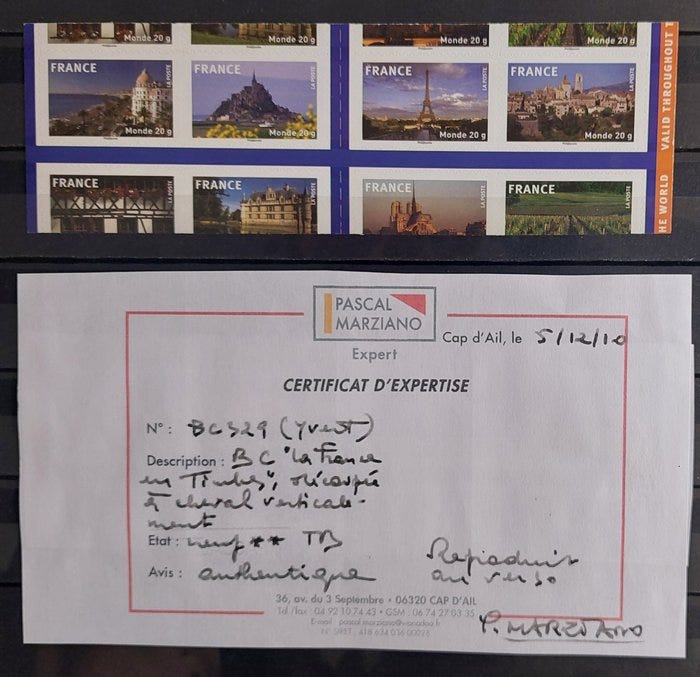 Monde 20 g Monde 20 g Monde 20 g
FRANCE FRANCE FRANCE FRANCE
LA POSTE LA POSTE LA POSTE LA POSTE
Monde 20 g Monde 20 g Monde 20 g Monde 20 g
FRANCE FRANCE FRANCE FRANCE
LA POSTE LA POSTE LA POSTE LA POSTE
HE WORLD VALID THROUGHOUT T
PASCAL
MARZIANO
Expert
Cap d'Ail, le 5/12/10
CERTIFICAT D'EXPERTISE
N° : BC329 (Yvert)
Description : BC "La France
en Timbres", découpée
à cheval verticale-
ment
Etat : neuf ** TB
Avis : authentique
Reproduit
au verso
36, av. du 3 Septembre • 06320 CAP D'AIL
Tél./fax : 04 92 10 74 43 • GSM : 06 74 27 03 35
E-mail : pascal.marziano@wanadoo.fr
N° SIRET : 418 634 016 00028
P. MARZIANO